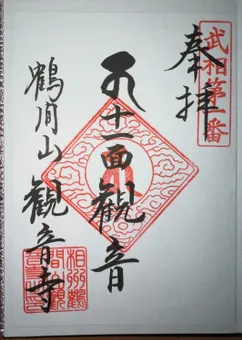 武相第一番
奉拝
十一面観音
鶴間山観音寺